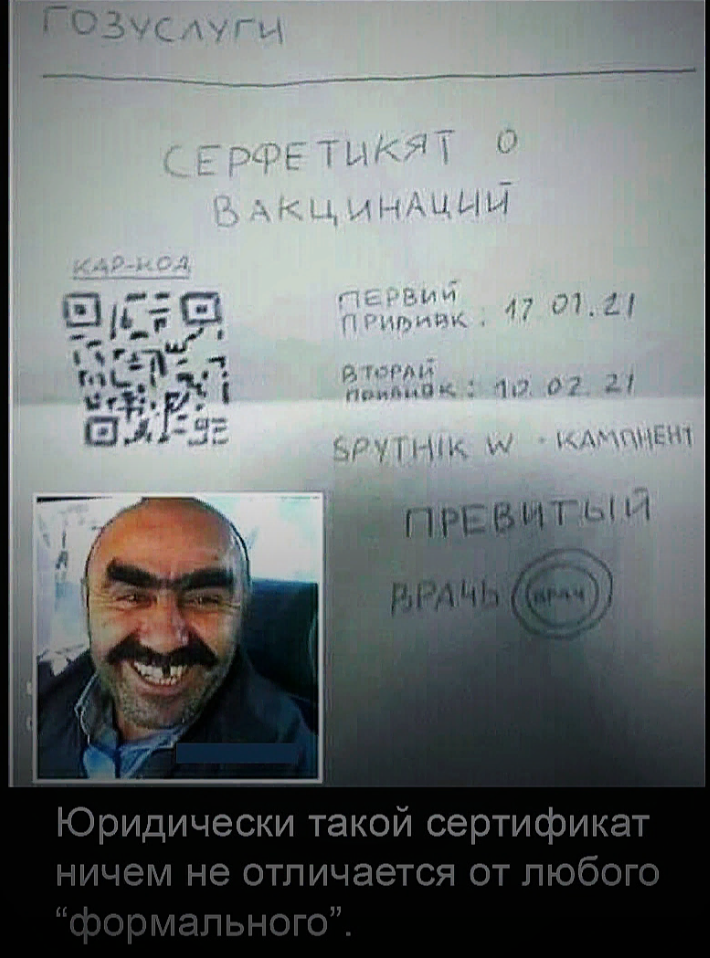 ГОЗУСЛУГИ
СЕРФЕТИКЯТ О
ВАКЦИНАЦИЙ
КАР-КОД
ПЕРВИЙ
ПРИВИВК : 17 01.21
ВТОРАЙ
ПРИВИВК : 10 02 21
SPYTНIК W - КАМПНЕНТ
ПРЕВИТЫЙ
ВРАЧЬ ВРАЧ
Юридически такой сертификат
ничем не отличается от любого
“формального”.